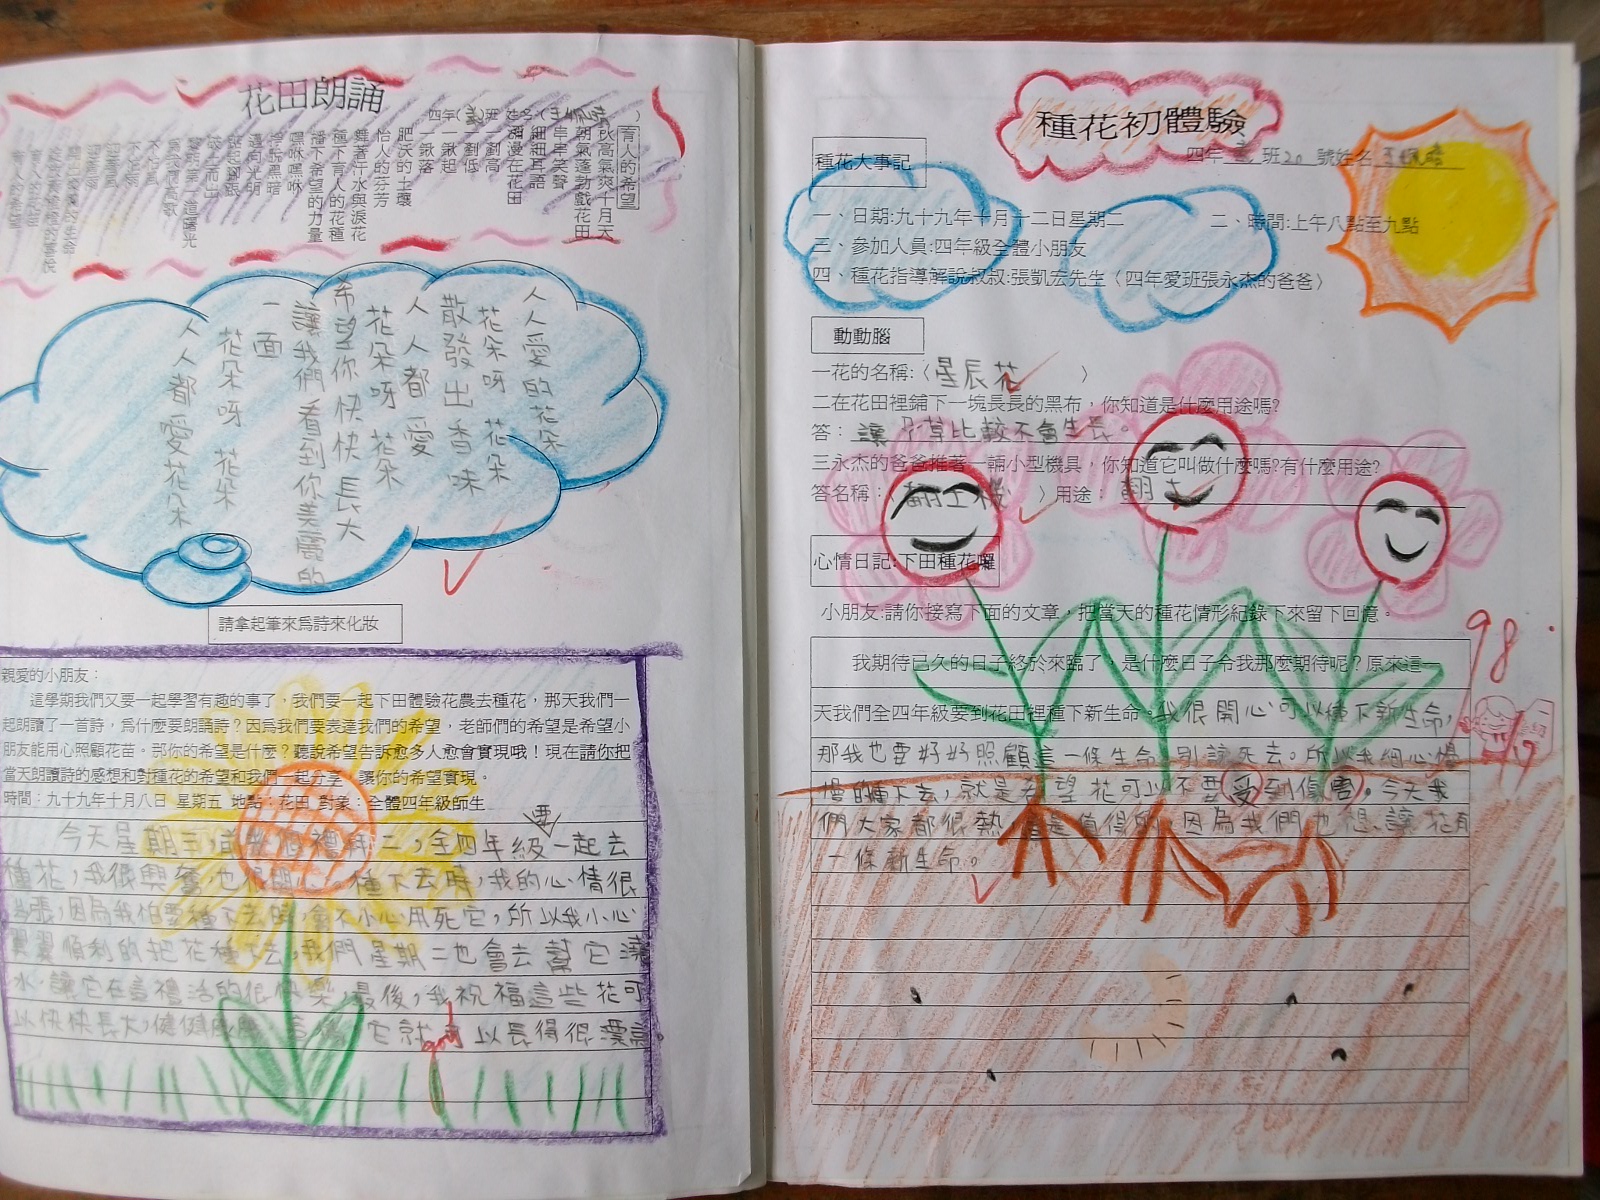 花田朗誦
四年( 班 姓名(
育人的希望
秋高氣爽十月天
朝氣蓬勃戲花田
串串笑聲
細細耳語
瀰漫在花田
一劃高
一劃低
一鍬起
一鍬落
肥沃的土壤
怡人的芬芳
舞著汗水與淚花
種下育人的花種
播下希望的力量
嘿咻嘿咻
掙脫黑暗
邁向光明
踮起腳跟
破土而出
黎明第一道曙光
人人愛的花朵
花朵呀 花朵
散發出香味
人人都愛
花朵呀 花朵
希望你快快長大
讓我們看到你美麗的
一面
花朵呀 花朵
人人都愛花朵
請拿起筆來為詩來化妝
親愛的小朋友：
這學期我們又要一起學習有趣的事了，我們要一起下田體驗花農去種花，那天我們一
起朗讀了一首詩，為什麼要朗誦詩？因為我們要表達我們的希望，老師們的希望是希望小
朋友能用心照顧花苗。那你的希望是什麼？聽說希望告訴愈多人愈會實現哦！現在請你把
當天朗讀詩的感想和對種花的希望和我們一起分享，讓你的希望實現。
時間：九十九年十月八日 星期五 地點：花田 對象：全體四年級師生
要
今天星期三,前 禮拜二,全四年級一起去
種花,我很興奮,也很開心,種下去時,我的心情很
緊張,因為我怕要種下去時,會不小心用死它,所以我小心
翼翼順利的把花種下去,我們星期二也會去幫它澆
水,讓它在這裡活的很快樂,最後,我祝福這些花可
以快快長大,健健康康,這樣,它就可以長得很漂亮。
種花初體驗
四年 班20 號姓名
種花大事記
一、日期:九十九年十月十二日星期二 二、時間:上午八點至九點
三、參加人員:四年級全體小朋友
四、種花指導解說叔叔:張凱宏先生（四年愛班張永杰的爸爸）
動動腦
一花的名稱:〈星辰花〉
二在花田裡鋪下一塊長長的黑布，你知道是什麼用途嗎?
答：讓雜草比較不會生長。
三永杰的爸爸推著一輛小型機具，你知道它叫做什麼嗎?有什麼用途?
答名稱：〈翻土機〉用途：翻土
心情日記:下田種花囉
小朋友:請你接寫下面的文章，把當天的種花情形紀錄下來留下回憶。
98.
我期待已久的日子終於來臨了，是什麼日子令我那麼期待呢？原來這一
天我們全四年級要到花田裡種下新生命。我很開心可以種下新生命,
那我也要好好照顧這一條生命,別讓死去。所以我細心慢
慢的種下去,就是希望花可以不要受到傷害。今天我
們大家都很熱,但是值得的,因為我們也想讓花有
一條新生命。